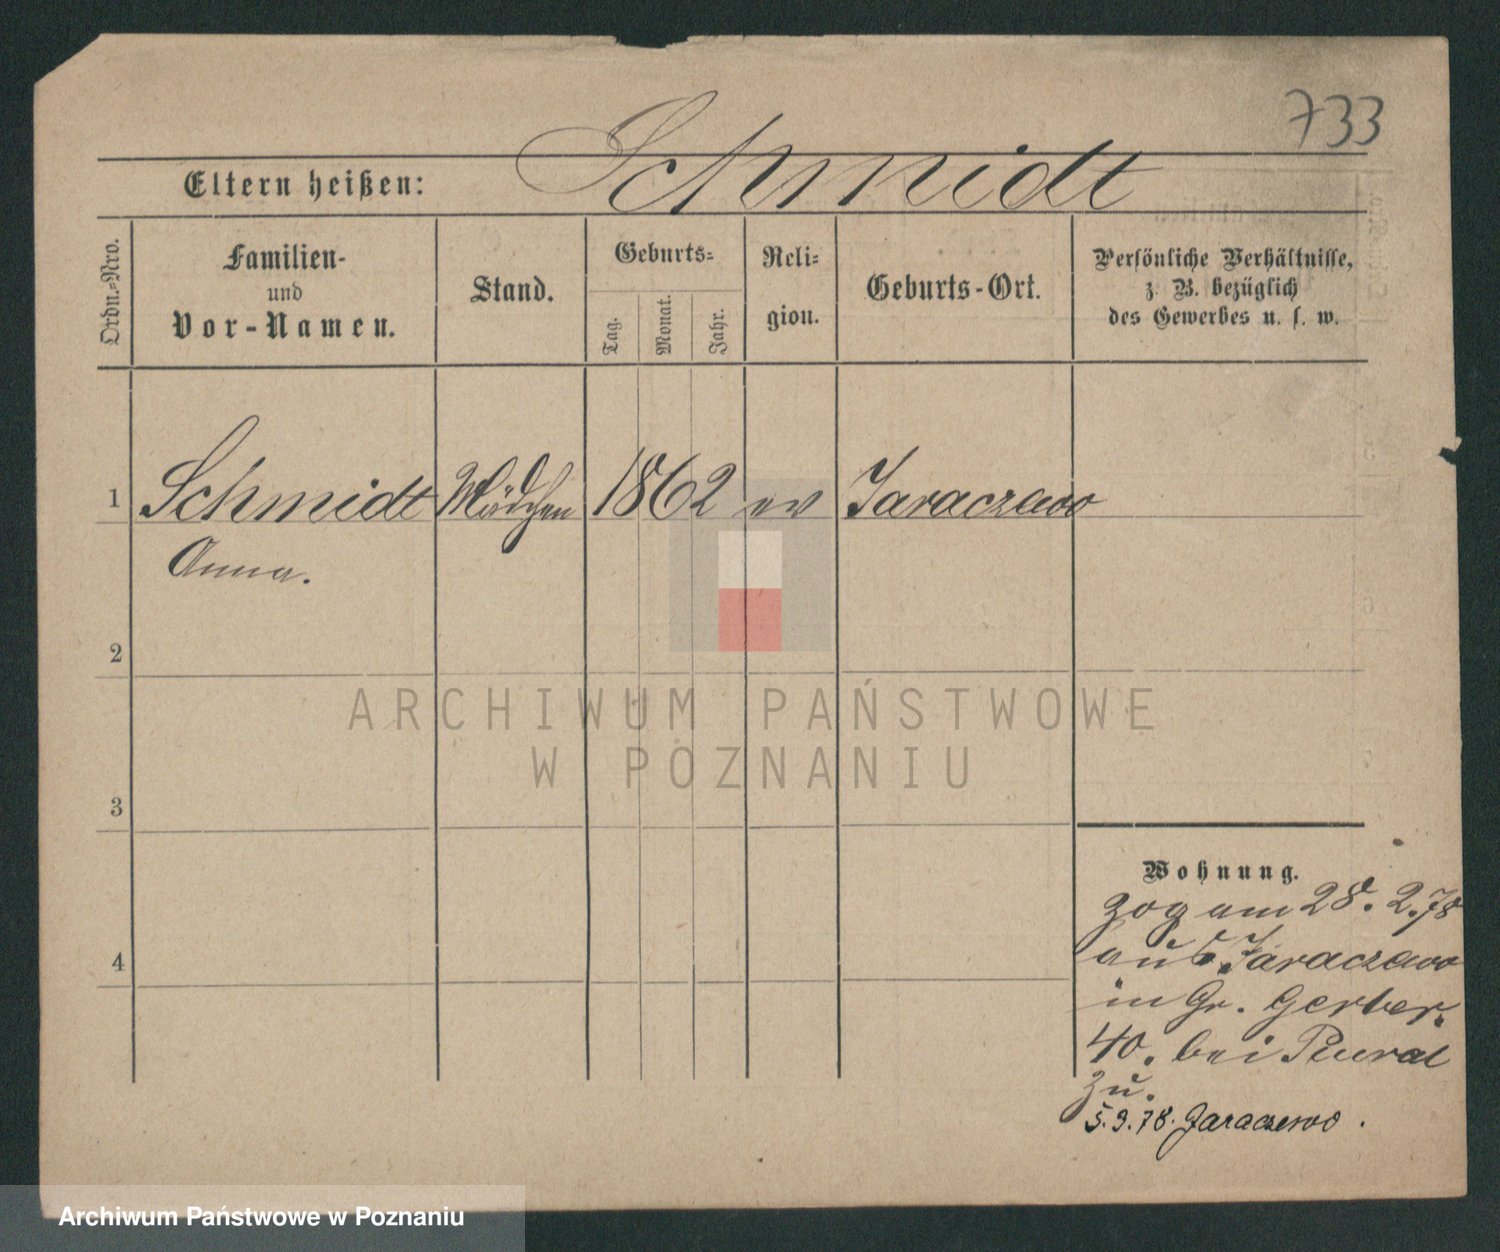 733
Eltern heißen: Schmidt
Ordn.=Nro.
Familien-
und
Vor-Namen.
Stand.
Geburts=
Tag.
Monat.
Jahr.
Reli=
gion.
Geburts-Ort.
Persönliche Verhältnisse,
z. B. bezüglich
des Gewerbes u. s. w.
1 Schmidt Mädchen 1862 ev Jaraczewo
Anna.
2
3
4
ARCHIWUM PAŃSTWOWE
W POZNANIU
Wohnung.
zog am 28. 2. 78
aus Jaraczewo
in Gr. Gerber.
40. bei
zu.
5. 9. 78. Jaraczewo.
Archiwum Państwowe w Poznaniu